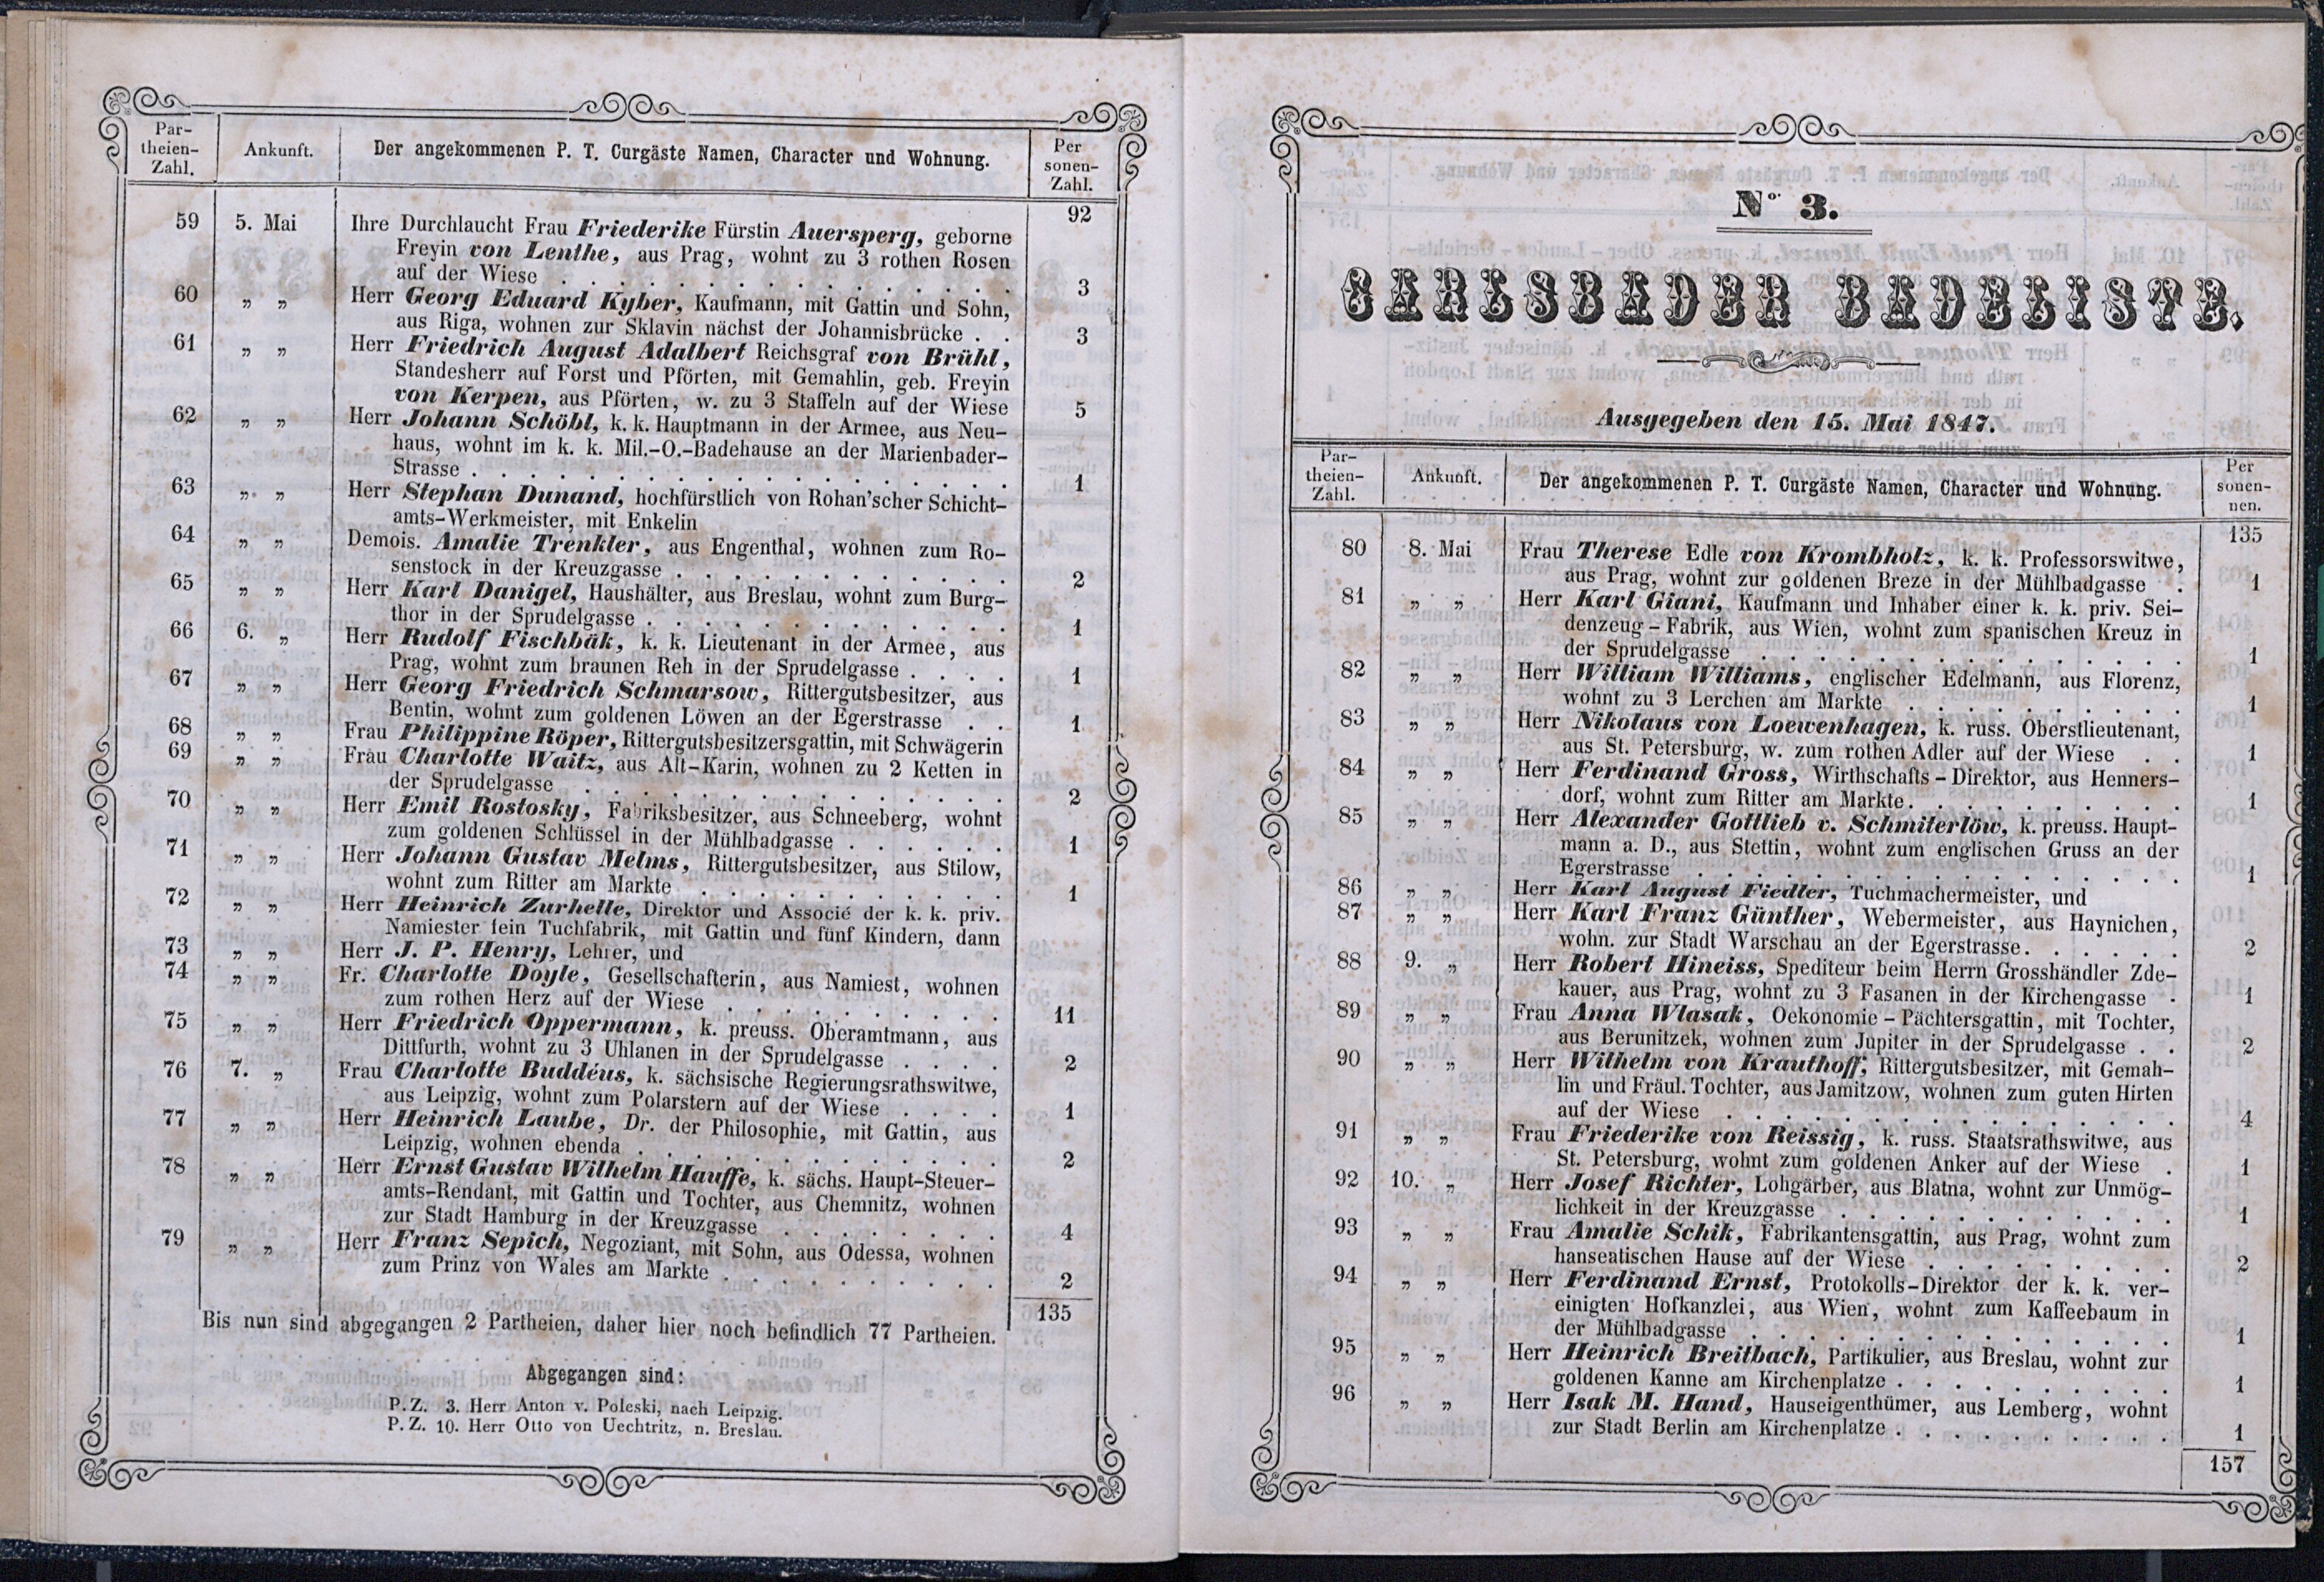 Par-
theien-
Zahl.
Ankunft.
Der angekommenen P. T. Curgäste Namen, Character und Wohnung.
Per
sonen-
Zahl.
92
59 5. Mai Ihre Durchlaucht Frau Friederike Fürstin Auersperg, geborne
Freyin von Lenthe, aus Prag, wohnt zu 3 rothen Rosen
auf der Wiese . . . 3
60 „ „ Herr Georg Eduard Kyber, Kaufmann, mit Gattin und Sohn,
aus Riga, wohnen zur Sklavin nächst der Johannisbrücke . . 3
61 „ „ Herr Friedrich August Adalbert Reichsgraf von Brühl,
Standesherr auf Forst und Pförten, mit Gemahlin, geb. Freyin
von Kerpen, aus Pförten, w. zu 3 Staffeln auf der Wiese 5
62 „ „ Herr Johann Schöbl, k. k. Hauptmann in der Armee, aus Neu-
haus, wohnt im k. k. Mil.-O.-Badehause an der Marienbader-
Strasse . . . 1
63 „ „ Herr Stephan Dunand, hochfürstlich von Rohan'scher Schicht-
amts-Werkmeister, mit Enkelin
64 „ „ Demois. Amalie Trenkler, aus Engenthal, wohnen zum Ro-
senstock in der Kreuzgasse . . . 2
65 „ „ Herr Karl Danigel, Haushälter, aus Breslau, wohnt zum Burg-
thor in der Sprudelgasse . . . 1
66 6. „ Herr Rudolf Fischbäk, k. k. Lieutenant in der Armee, aus
Prag, wohnt zum braunen Reh in der Sprudelgasse . . . . 1
67 „ „ Herr Georg Friedrich Schmarsow, Rittergutsbesitzer, aus
Bentin, wohnt zum goldenen Löwen an der Egerstrasse . . 1
68 „ „ Frau Philippine Röper, Rittergutsbesitzersgattin, mit Schwägerin
69 „ „ Frau Charlotte Waitz, aus Alt-Karin, wohnen zu 2 Ketten in
der Sprudelgasse . . . 2
70 „ „ Herr Emil Rostosky, Fabriksbesitzer, aus Schneeberg, wohnt
zum goldenen Schlüssel in der Mühlbadgasse . . . 1
71 „ „ Herr Johann Gustav Melms, Rittergutsbesitzer, aus Stilow,
wohnt zum Ritter am Markte . . . 1
72 „ „ Herr Heinrich Zurhelle, Direktor und Associé der k. k. priv.
Namiester fein Tuchfabrik, mit Gattin und fünf Kindern, dann
73 „ „ Herr J. P. Henry, Lehrer, und
74 „ „ Fr. Charlotte Doyle, Gesellschafterin, aus Namiest, wohnen
zum rothen Herz auf der Wiese . . . 11
75 „ „ Herr Friedrich Oppermann, k. preuss. Oberamtmann, aus
Dittfurth, wohnt zu 3 Uhlanen in der Sprudelgasse . . . . 2
76 7. „ Frau Charlotte Buddéus, k. sächsische Regierungsrathswitwe,
aus Leipzig, wohnt zum Polarstern auf der Wiese . . . . 1
77 „ „ Herr Heinrich Laube, Dr. der Philosophie, mit Gattin, aus
Leipzig, wohnen ebenda . . . 2
78 „ „ Herr Ernst Gustav Wilhelm Hauffe, k. sächs. Haupt-Steuer-
amts-Rendant, mit Gattin und Tochter, aus Chemnitz, wohnen
zur Stadt Hamburg in der Kreuzgasse . . . 4
79 „ „ Herr Franz Sepich, Negoziant, mit Sohn, aus Odessa, wohnen
zum Prinz von Wales am Markte . . . 2
135
Bis nun sind abgegangen 2 Partheien, daher hier noch befindlich 77 Partheien.
Abgegangen sind:
P. Z. 3. Herr Anton v. Poleski, nach Leipzig.
P. Z. 10. Herr Otto von Uechtritz, n. Breslau.
No. 3.
CARLSBADER BADELISTE.
Ausgegeben den 15. Mai 1847.
Par-
theien-
Zahl.
Ankunft.
Der angekommenen P. T. Curgäste Namen, Character und Wohnung.
Per
sonen-
nen.
135
80 8. Mai Frau Therese Edle von Krombholz, k. k. Professorswitwe,
aus Prag, wohnt zur goldenen Breze in der Mühlbadgasse . 1
81 „ „ Herr Karl Giani, Kaufmann und Inhaber einer k. k. priv. Sei-
denzeug-Fabrik, aus Wien, wohnt zum spanischen Kreuz in
der Sprudelgasse . . . 1
82 „ „ Herr William Williams, englischer Edelmann, aus Florenz,
wohnt zu 3 Lerchen am Markte . . . 1
83 „ „ Herr Nikolaus von Loewenhagen, k. russ. Oberstlieutenant,
aus St. Petersburg, w. zum rothen Adler auf der Wiese . . 1
84 „ „ Herr Ferdinand Gross, Wirthschafts-Direktor, aus Henners-
dorf, wohnt zum Ritter am Markte . . . 1
85 „ „ Herr Alexander Gottlieb v. Schmiterlöw, k. preuss. Haupt-
mann a. D., aus Stettin, wohnt zum englischen Gruss an der
Egerstrasse . . . 1
86 „ „ Herr Karl August Fiedler, Tuchmachermeister, und
87 „ „ Herr Karl Franz Günther, Webermeister, aus Haynichen,
wohn. zur Stadt Warschau an der Egerstrasse . . . 2
88 9. „ Herr Robert Hineiss, Spediteur beim Herrn Grosshändler Zde-
kauer, aus Prag, wohnt zu 3 Fasanen in der Kirchengasse . 1
89 „ „ Frau Anna Wlasak, Oekonomie-Pächtersgattin, mit Tochter,
aus Berunitzek, wohnen zum Jupiter in der Sprudelgasse . . 2
90 „ „ Herr Wilhelm von Krauthoff, Rittergutsbesitzer, mit Gemah-
lin und Fräul. Tochter, aus Jamitzow, wohnen zum guten Hirten
auf der Wiese . . . 4
91 „ „ Frau Friederike von Reissig, k. russ. Staatsrathswitwe, aus
St. Petersburg, wohnt zum goldenen Anker auf der Wiese . 1
92 10. „ Herr Josef Richter, Lohgärber, aus Blatna, wohnt zur Unmög-
lichkeit in der Kreuzgasse . . . 1
93 „ „ Frau Amalie Schik, Fabrikantensgattin, aus Prag, wohnt zum
hanseatischen Hause auf der Wiese . . . 2
94 „ „ Herr Ferdinand Ernst, Protokolls-Direktor der k. k. ver-
einigten Hofkanzlei, aus Wien, wohnt zum Kaffeebaum in
der Mühlbadgasse . . . 1
95 „ „ Herr Heinrich Breitbach, Partikulier, aus Breslau, wohnt zur
goldenen Kanne am Kirchenplatze . . . 1
96 „ „ Herr Isak M. Hand, Hauseigenthümer, aus Lemberg, wohnt
zur Stadt Berlin am Kirchenplatze . . . 1
157